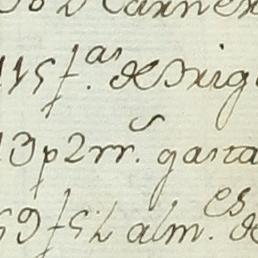 Carner
115 f.as de trig
13 p 2 rr.s gasta
59 f 5 2 alm.es de